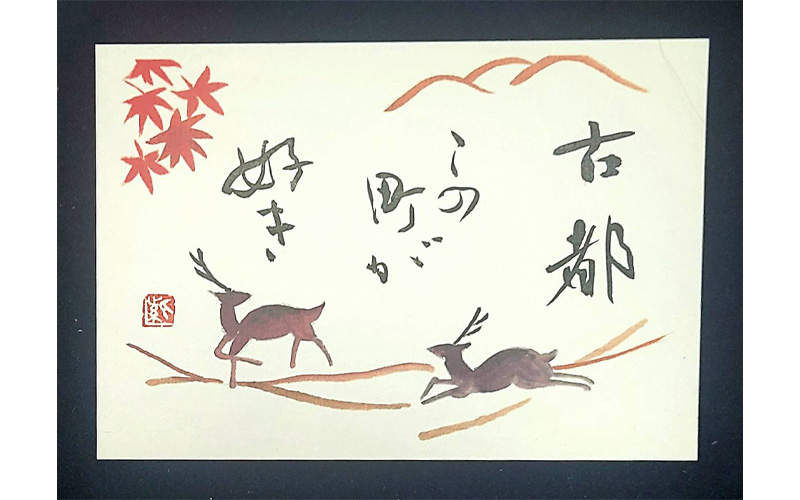 古都
この
町が
好き